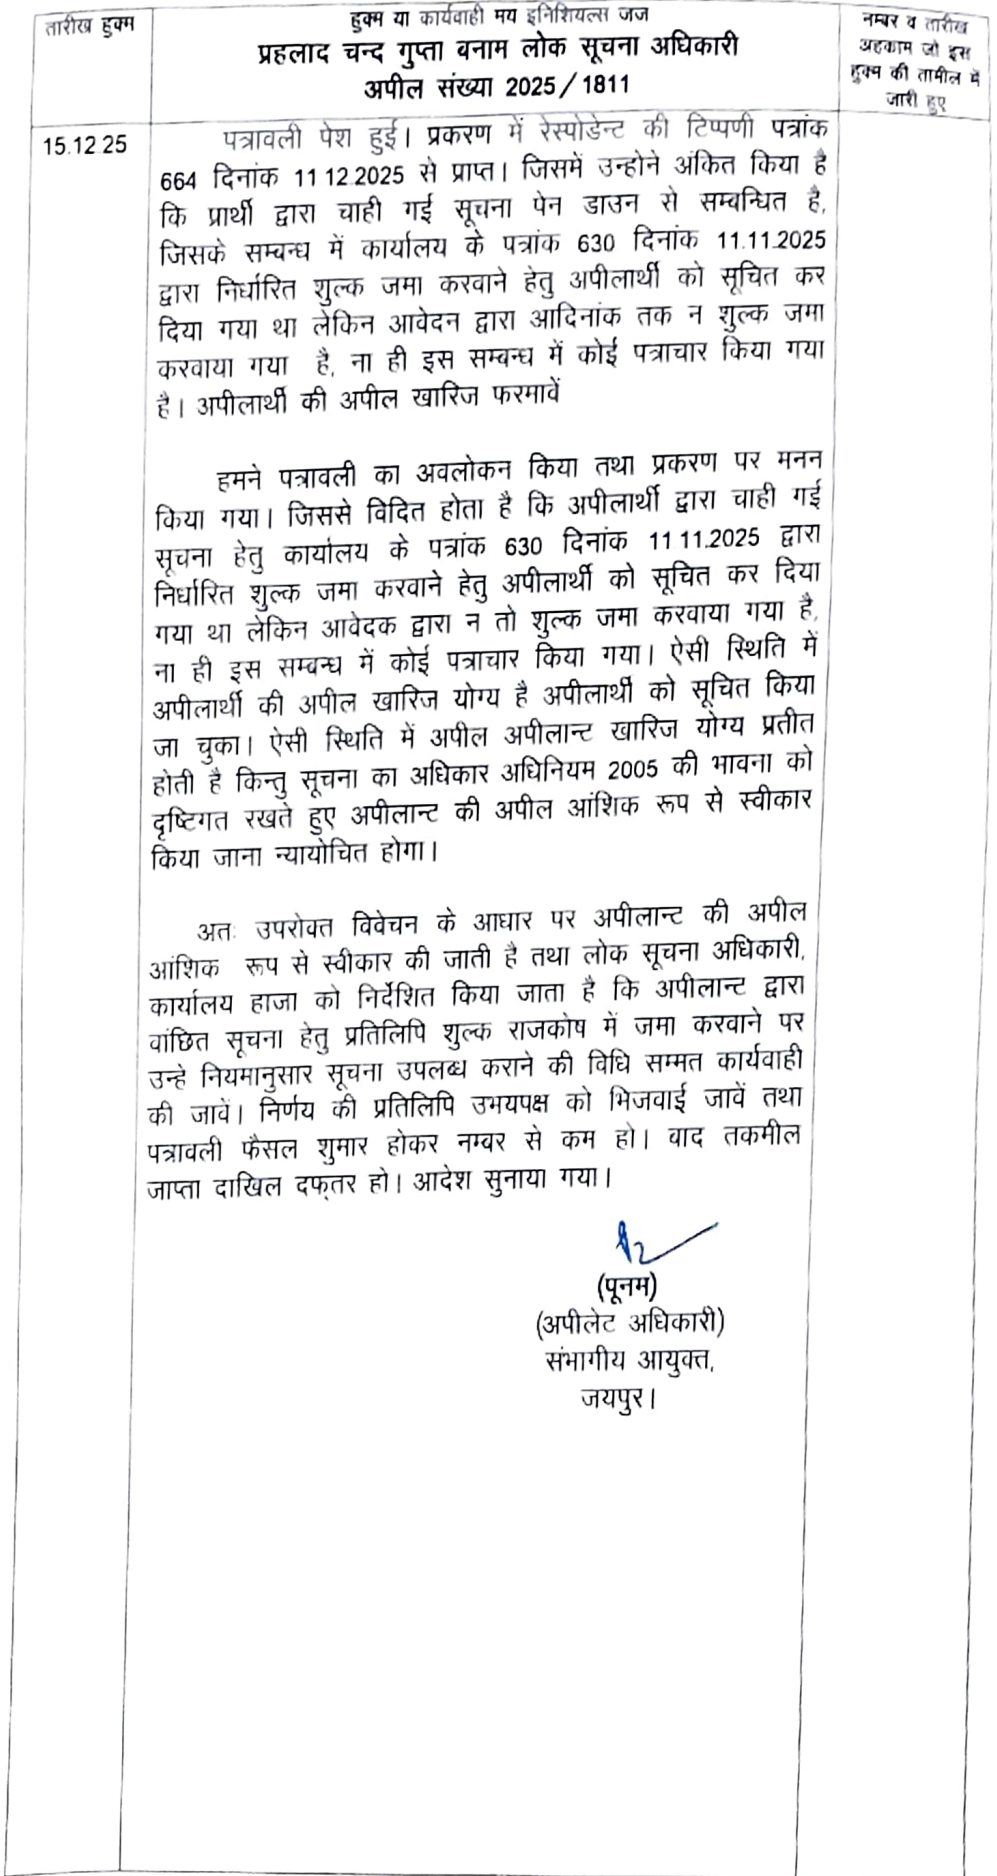 तारीख हुक्म
हुक्म या कार्यवाही मय इनिशियल्स जज
प्रहलाद चन्द गुप्ता बनाम लोक सूचना अधिकारी
अपील संख्या 2025/1811
नम्बर व तारीख
अहकाम जो इस
हुक्म की तामील में
जारी हुए
15.12.25
पत्रावली पेश हुई। प्रकरण में रेस्पोडेन्ट की टिप्पणी पत्रांक
664 दिनांक 11.12.2025 से प्राप्त। जिसमें उन्होने अंकित किया है
कि प्रार्थी द्वारा चाही गई सूचना पेन डाउन से सम्बन्धित है,
जिसके सम्बन्ध में कार्यालय के पत्रांक 630 दिनांक 11.11.2025
द्वारा निर्धारित शुल्क जमा करवाने हेतु अपीलार्थी को सूचित कर
दिया गया था लेकिन आवेदन द्वारा आदिनांक तक न शुल्क जमा
करवाया गया है, ना ही इस सम्बन्ध में कोई पत्राचार किया गया
है। अपीलार्थी की अपील खारिज फरमावें
हमने पत्रावली का अवलोकन किया तथा प्रकरण पर मनन
किया गया। जिससे विदित होता है कि अपीलार्थी द्वारा चाही गई
सूचना हेतु कार्यालय के पत्रांक 630 दिनांक 11.11.2025 द्वारा
निर्धारित शुल्क जमा करवाने हेतु अपीलार्थी को सूचित कर दिया
गया था लेकिन आवेदक द्वारा न तो शुल्क जमा करवाया गया है,
ना ही इस सम्बन्ध में कोई पत्राचार किया गया। ऐसी स्थिति में
अपीलार्थी की अपील खारिज योग्य है अपीलार्थी को सूचित किया
जा चुका। ऐसी स्थिति में अपील अपीलान्ट खारिज योग्य प्रतीत
होती है किन्तु सूचना का अधिकार अधिनियम 2005 की भावना को
दृष्टिगत रखते हुए अपीलान्ट की अपील आंशिक रूप से स्वीकार
किया जाना न्यायोचित होगा।
अतः उपरोक्त विवेचन के आधार पर अपीलान्ट की अपील
आंशिक रूप से स्वीकार की जाती है तथा लोक सूचना अधिकारी,
कार्यालय हाजा को निर्देशित किया जाता है कि अपीलान्ट द्वारा
वांछित सूचना हेतु प्रतिलिपि शुल्क राजकोष में जमा करवाने पर
उन्हे नियमानुसार सूचना उपलब्ध कराने की विधि सम्मत कार्यवाही
की जावें। निर्णय की प्रतिलिपि उभयपक्ष को भिजवाई जावें तथा
पत्रावली फैसल शुमार होकर नम्बर से कम हो। बाद तकमील
जाप्ता दाखिल दफ्तर हो। आदेश सुनाया गया।
(पूनम)
(अपीलेट अधिकारी)
संभागीय आयुक्त,
जयपुर।